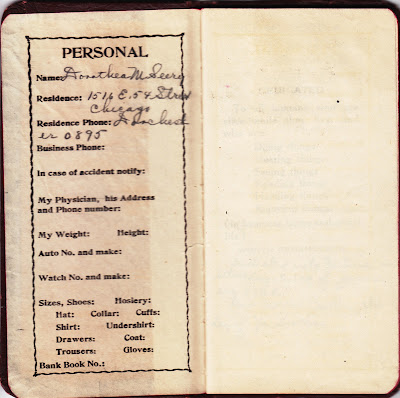 PERSONAL
Name: Dorothea M Seery
Residence: 1516 E. 54 Street
Chicago
Residence Phone: Dorchest
er 0895
Business Phone:
In case of accident notify:
My Physician, his Address
and Phone number:
My Weight: Height:
Auto No. and make:
Watch No. and make:
Sizes, Shoes: Hosiery:
Hat: Collar: Cuffs:
Shirt: Undershirt:
Drawers: Coat:
Trousers: Gloves:
Bank Book No.: